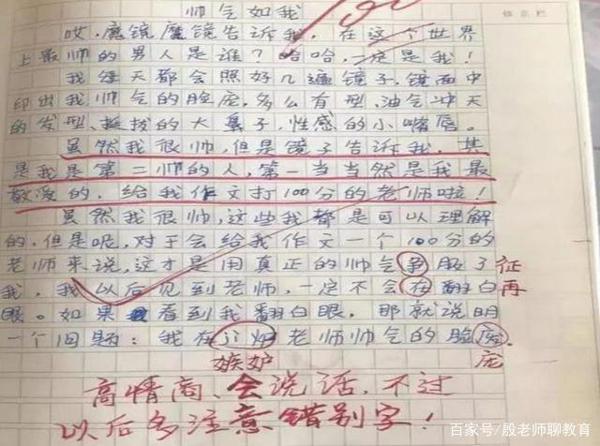 帅气如我
哎,魔镜魔镜告诉我,在这个世界
上最帅的男人是谁?哈哈,一定是我!
我每天都会照好几遍镜子,镜面中
印出我帅气的脸庞,多么有型,油气冲天
的发型、挺拔的大鼻子,性感的小嘴唇。
虽然我很帅,但是镜子告诉我,其
是我是第二帅的人,第一当当然是我最
敬爱的,给我作文打100分的老师啦!
虽然我很帅,这些我都是可以理解
的,但是呢,对于会给我作文一个100分的
老师来说,这才是用真正的帅气服了 征
我,我以后见到老师,一定不会在翻白 再
眼。如果看到我翻白眼,那就说明
一个问题:我在老师帅气的脸。
嫉妒 庞
高情商、会说话,不过
以后多注意错别字!
百家号/殷老师聊教育